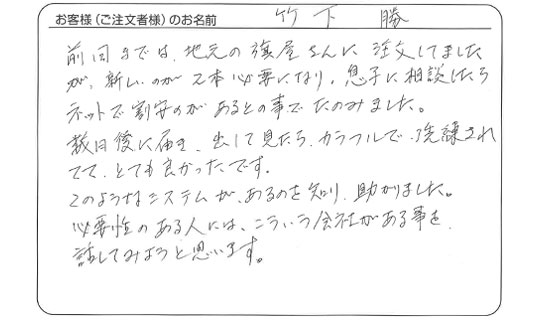 お客様(ご注文者様)のお名前 竹下 勝
前回までは、地元の旗屋さんに注文してました
が、新しいのが2本必要になり、息子に相談したら
ネットで割安のがあるとの事でたのみました。
数日後に届き、出して見たら、カラフルで、洗練され
てて、とても良かったです。
このようなシステムが、あるのを知り、助かりました。
必要性のある人には、こういう会社がある事を、
話してみようと思います。